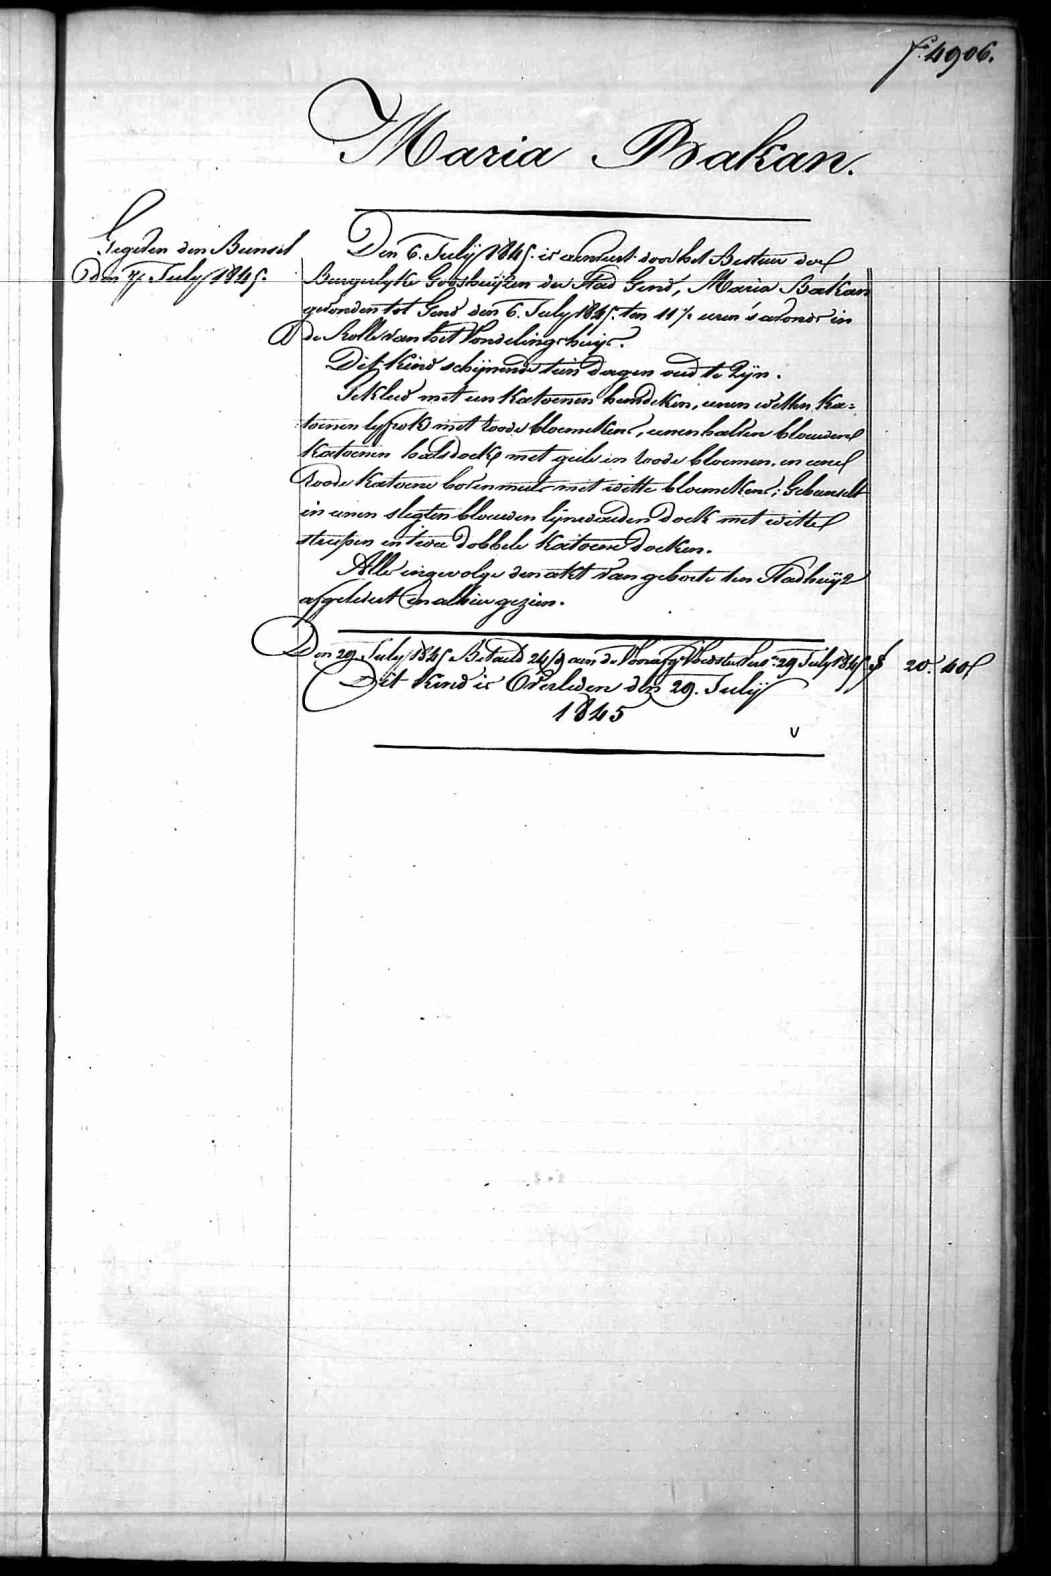 f. 4906.
Maria Bakan.
Gegeven den Bunsel
den 7. July 1845.
Den 6. July 1845. is aenveert door het Bestuer der
Burgerlyke Godshuijzen der Stad Gend, Maria Bakan
gevonden tot Gend den 6. July 1845. ten 11 ½ uren 's avonds in
de Rolle van het Vondelingshuijs.
Dit Kind schijnende tien dagen oud te Zijn.
Gekleed met een Katoenen hemdeken, eenen witten Ka=
toenen lyfrok met roode bloemekens, eenen halven blauwen
Katoenen halsdoek met geele en roode bloemen. en eene
roode Katoene bovenmuts met witte bloemekens; Gebunselt
in eenen slegten blauwen lijnwaeden doek met witte
streepen en twee dobbele Katoene doeken.
Alles ingevolge den akt van geboorte ten Stadhuijze
afgelevert en alhier gezien.
Den 29. July 1845 Betaeld 24/9 aen de Voedster 29 July 1845. 20. 40
Dit Kind is Overleden den 29. Julij
1845
v